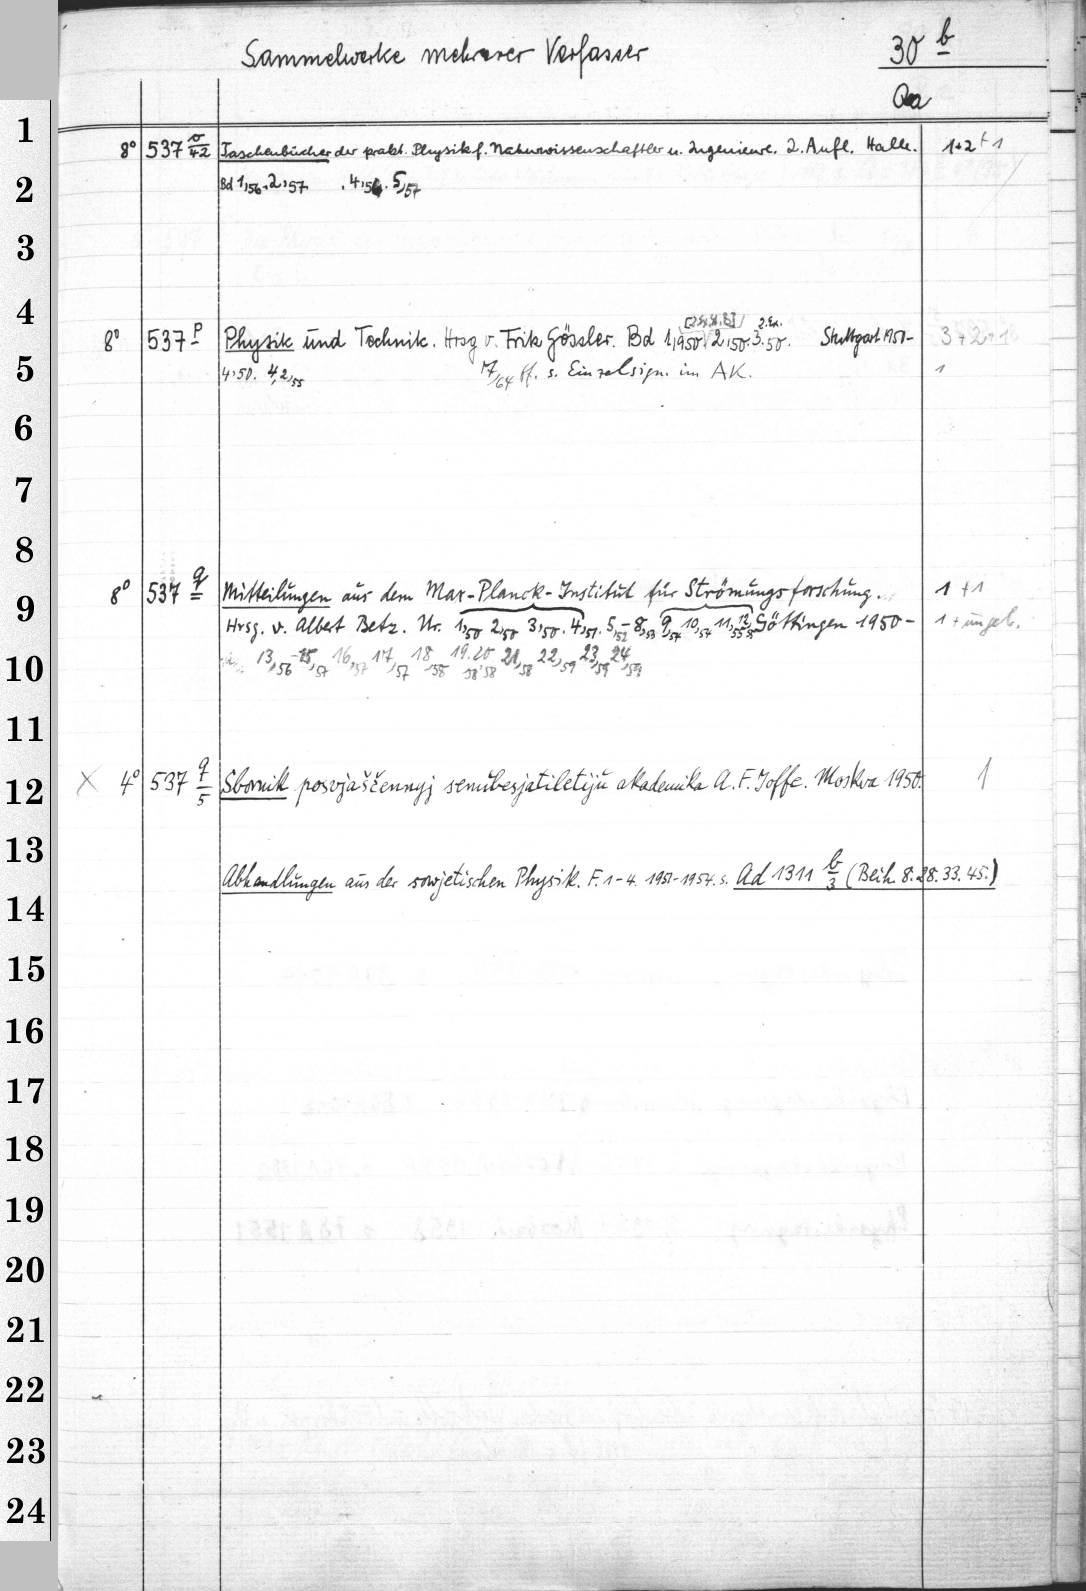 Sammelwerke mehrerer Verfasser 30 b
Qa
1
8° 537 o/42 Taschenbücher der prakt. Physik f. Naturwissenschaftler u. Ingenieure. 2. Aufl. Halle. 1+2+1
2
Bd 1,56. 2,57. .4,56. 5,57
3
4
[2.Ex.
2.Ex.
8° 537 p Physik und Technik. Hrsg v. Frik Gössler. Bd 1,1950. 2,50. 3.50. Stuttgart 1950- 3+2+1
5
4,50. 4,2,55 17/64 ff. s. Einzelsign. im AK. 1
6
7
8
8° 537 q Mitteilungen aus dem Max-Planck-Institut für Strömungsforschung. 1+1
9
Hrsg. v. Albert Betz. Nr. 1,50 2,50 3,50. 4,51. 5,52-8,53 9,54 10,54 11,55 12,55 Göttingen 1950- 1+ungeb.
10
13,56 -15,57 16,57 17,57 18,58 19.20 58'58 21,58 22,59 23,59 24,59
11
12
X 4° 537 q/5 Sbornik posvjaščennyj semidesjatiletiju akademika A. F. Joffe. Moskva 1950. 1
13
Abhandlungen aus der sowjetischen Physik. F. 1-4. 1951-1954. s. Ad 1311 b/3 (Beih. 8. 28. 33. 45.)
14
15
16
17
18
19
20
21
22
23
24